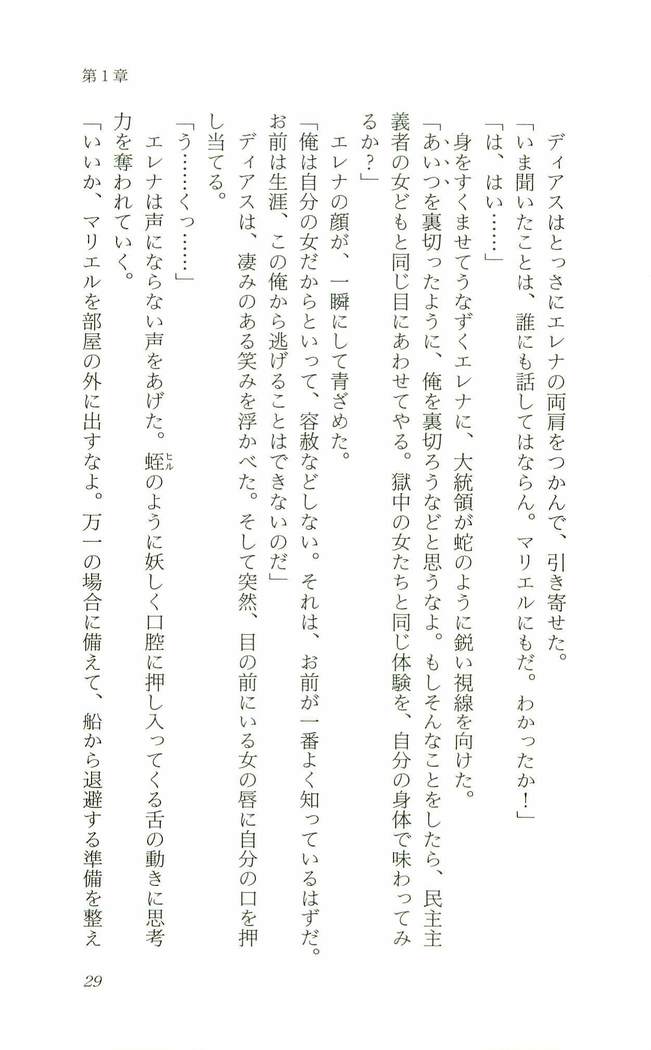 第１章
　ディアスはとっさにエレナの両肩をつかんで、引き寄せた。
「いま聞いたことは、誰にも話してはならん。マリエルにもだ。わかったか！」
「は、はい……」
　身をすくませてうなずくエレナに、大統領が蛇のように鋭い視線を向けた。
「あいつを裏切ったように、俺を裏切ろうなどと思うなよ。もしそんなことをしたら、民主主
義者の女どもと同じ目にあわせてやる。獄中の女たちと同じ体験を、自分の身体で味わってみ
るか？」
　エレナの顔が、一瞬にして青ざめた。
「俺は自分の女だからといって、容赦などしない。それは、お前が一番よく知っているはずだ。
お前は生涯、この俺から逃げることはできないのだ」
　ディアスは、凄みのある笑みを浮かべた。そして突然、目の前にいる女の唇に自分の口を押
し当てる。
「う……くっ……」
　エレナは声にならない声をあげた。蛭ヒルのように妖しく口腔に押し入ってくる舌の動きに思考
力を奪われていく。
「いいか、マリエルを部屋の外に出すなよ。万一の場合に備えて、船から退避する準備を整え
29